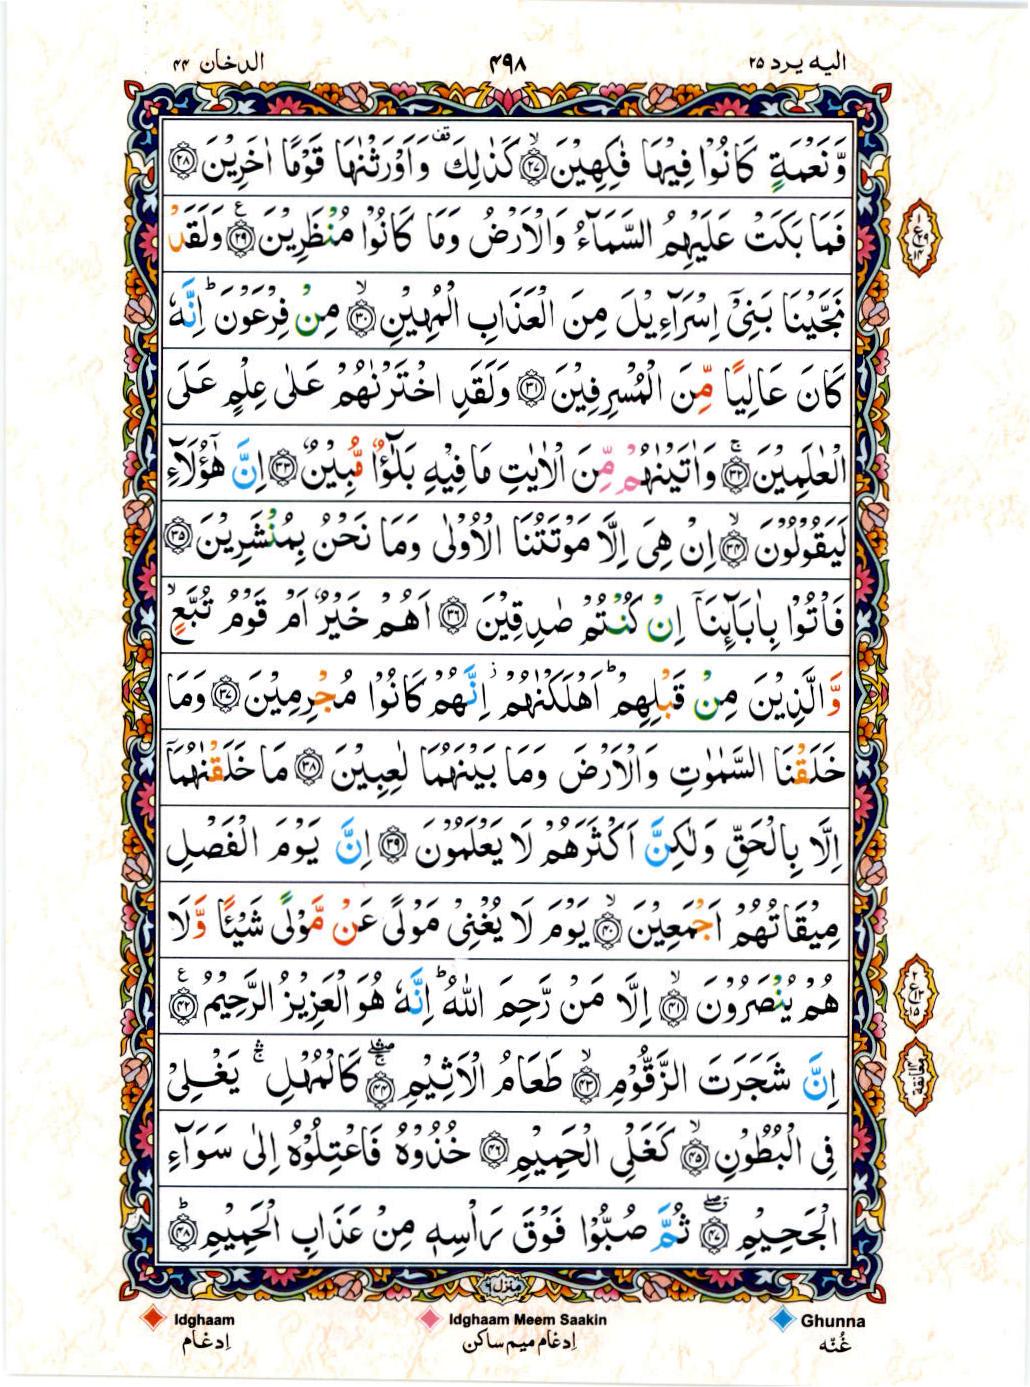 الیه یرد ۲۵
۴۹۸
الدخان ۴۴
وَّنَعۡمَةٍ كَانُوۡا فِيۡهَا فٰكِهِيۡنَۙ‏ ﴿۲۷﴾ كَذٰلِكَ ࣞ وَاَوۡرَثۡنٰهَا قَوۡمًا اٰخَرِيۡنَ‏ ﴿۲۸﴾
فَمَا بَكَتۡ عَلَيۡهِمُ السَّمَآءُ وَالۡاَرۡضُ وَمَا كَانُوۡا مُنۡظَرِيۡنَ‏ ﴿۲۹﴾ وَلَقَدۡ
نَجَّيۡنَا بَنِىۡۤ اِسۡرَآءِيۡلَ مِنَ الۡعَذَابِ الۡمُهِيۡنِۙ‏ ﴿۳۰﴾ مِنۡ فِرۡعَوۡنَ‌ؕ اِنَّهٗ
كَانَ عَالِيًا مِّنَ الۡمُسۡرِفِيۡنَ‏ ﴿۳۱﴾ وَلَقَدِ اخۡتَرۡنٰهُمۡ عَلٰى عِلۡمٍ عَلَى
الۡعٰلَمِيۡنَ‌ۚ‏ ﴿۳۲﴾ وَاٰتَيۡنٰهُمۡ مِّنَ الۡاٰيٰتِ مَا فِيۡهِ بَلٰٓؤٌا مُّبِيۡنٌ‏ ﴿۳۳﴾ اِنَّ هٰٓؤُلَآءِ
لَيَقُوۡلُوۡنَۙ‏ ﴿۳۴﴾ اِنۡ هِىَ اِلَّا مَوۡتَتُنَا الۡاُوۡلٰى وَمَا نَحۡنُ بِمُنۡشَرِيۡنَ‏ ﴿۳۵﴾
فَاۡتُوۡا بِاٰبَآٮِٕنَاۤ اِنۡ كُنۡتُمۡ صٰدِقِيۡنَ‏ ﴿۳۶﴾ اَهُمۡ خَيۡرٌ اَمۡ قَوۡمُ تُبَّعٍۙ
وَّالَّذِيۡنَ مِنۡ قَبۡلِهِمۡ‌ؕ اَهۡلَكۡنٰهُمۡ‌ اِنَّهُمۡ كَانُوۡا مُجۡرِمِيۡنَ‏ ﴿۳۷﴾ وَمَا
خَلَقۡنَا السَّمٰوٰتِ وَالۡاَرۡضَ وَمَا بَيۡنَهُمَا لٰعِبِيۡنَ‏ ﴿۳۸﴾ مَا خَلَقۡنٰهُمَاۤ
اِلَّا بِالۡحَقِّ وَلٰكِنَّ اَكۡثَرَهُمۡ لَا يَعۡلَمُوۡنَ‏ ﴿۳۹﴾ اِنَّ يَوۡمَ الۡفَصۡلِ
مِيۡقَاتُهُمۡ اَجۡمَعِيۡنَۙ‏ ﴿۴۰﴾ يَوۡمَ لَا يُغۡنِىۡ مَوۡلًى عَنۡ مَّوۡلًى شَيۡـــًٔا وَّلَا
هُمۡ يُنۡصَرُوۡنَۙ‏ ﴿۴۱﴾ اِلَّا مَنۡ رَّحِمَ اللّٰهُ‌ؕ اِنَّهٗ هُوَ الۡعَزِيۡزُ الرَّحِيۡمُ‏ ﴿۴۲﴾
اِنَّ شَجَرَتَ الزَّقُّوۡمِۙ‏ ﴿۴۳﴾ طَعَامُ الۡاَثِيۡمِ ‏ ﴿۴۴﴾ كَالۡمُهۡلِ ۛۚ يَغۡلِىۡ
فِى الۡبُطُوۡنِۙ‏ ﴿۴۵﴾ كَغَلۡىِ الۡحَمِيۡمِ‏ ﴿۴۶﴾ خُذُوۡهُ فَاعۡتِلُوۡهُ اِلٰى سَوَآءِ
الۡجَحِيۡمِ ‏ ﴿۴۷﴾ ثُمَّ صُبُّوۡا فَوۡقَ رَاۡسِهٖ مِنۡ عَذَابِ الۡحَمِيۡمِؕ‏ ﴿۴۸﴾
۱ ع ۲۹ ۱۴
۲ ع ۱۳ ۱۵
معانقة
Ghunna
غُنّه
Idghaam Meem Saakin
اِدغام میم ساکن
Idghaam
اِدغام